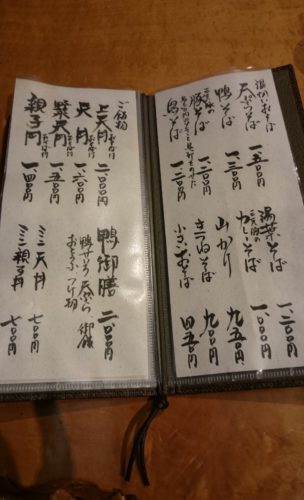 温かいおそば
天ぷらそば 一、五〇〇円
鴨そば 一、三〇〇円
豚そば 一、二〇〇円
鳥そば 一、一〇〇円
湯葉そば 一、二〇〇円
カレーそば 一、〇〇〇円
山かけ 九五〇円
きつねそば 九〇〇円
小さいおそば 四五〇円
ご飯物
上天丼 二、〇〇〇円
天丼 一、六〇〇円
野菜天丼 一、五〇〇円
親子丼 一、四〇〇円
鴨御膳 二、八〇〇円
鴨せいろ 天ぷら 御飯
おとうふ つけ物
ミニ天丼 七〇〇円
ミニ親子丼 七〇〇円